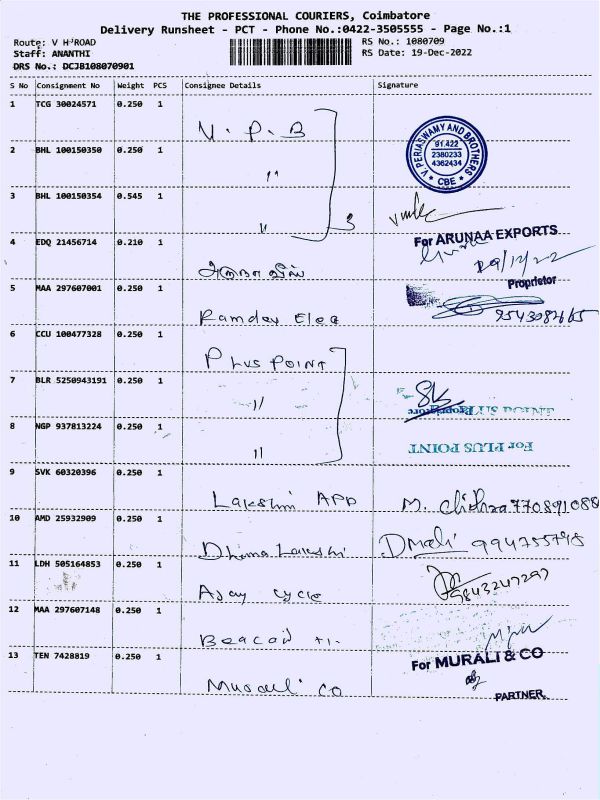 THE PROFESSIONAL COURIERS, Coimbatore
Delivery Runsheet - PCT - Phone No.:0422-3505555 - Page No.:1
Route: V H ROAD
RS No.: 1080709
Staff: ANANTHI
RS Date: 19-Dec-2022
DRS No.: DCJB108070901
S No Consignment No Weight PCS Consignee Details Signature
1 TCG 30024571 0.250 1
V. P. B
V. PERIASWAMY AND BROTHERS
91.422
2380233
4362434
* CBE *
2 BHL 100150350 0.250 1
"
3 BHL 100150354 0.545 1
" 3
For ARUNAA EXPORTS
4 EDQ 21456714 0.210 1
19/12/22
Proprietor
5 MAA 297607001 0.250 1
Ramdev Elec
6 CCU 100477328 0.250 1
PLUS POINT
7 BLR 5250943191 0.250 1
"
8 NGP 937813224 0.250 1
" For PLUS POINT
9 SVK 60320396 0.250 1
Lakshmi APP M. Chithra
10 AMD 25932909 0.250 1
Dhana Lakshmi
11 LDH 505164853 0.250 1
Ajay cycle 9843247297
12 MAA 297607148 0.250 1
Beacon
For MURALI & CO
13 TEN 7428819 0.250 1
Murali co
PARTNER.